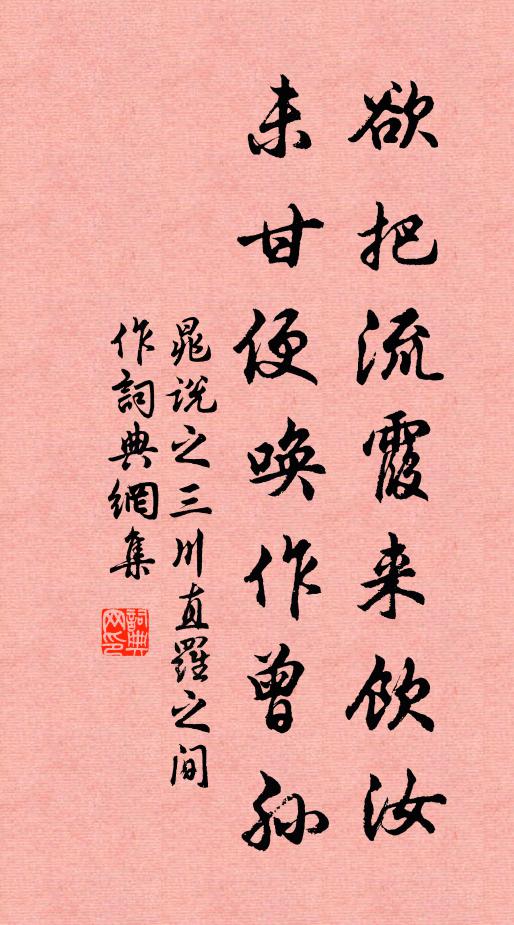 欲把流霞来飲汝
未甘便唤作曾孙
晁说之三川直羅之间
作詞典網集
詞典網印